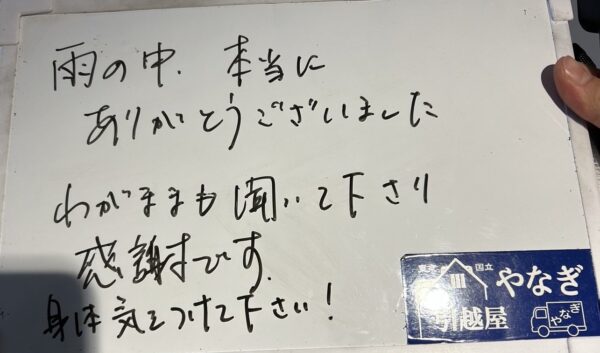 雨の中、本当に
ありがとうございました
わがままも聞いて下さり
感謝です.
身体気をつけて下さい!
東京 国立
やなぎ
引越屋
やなぎ